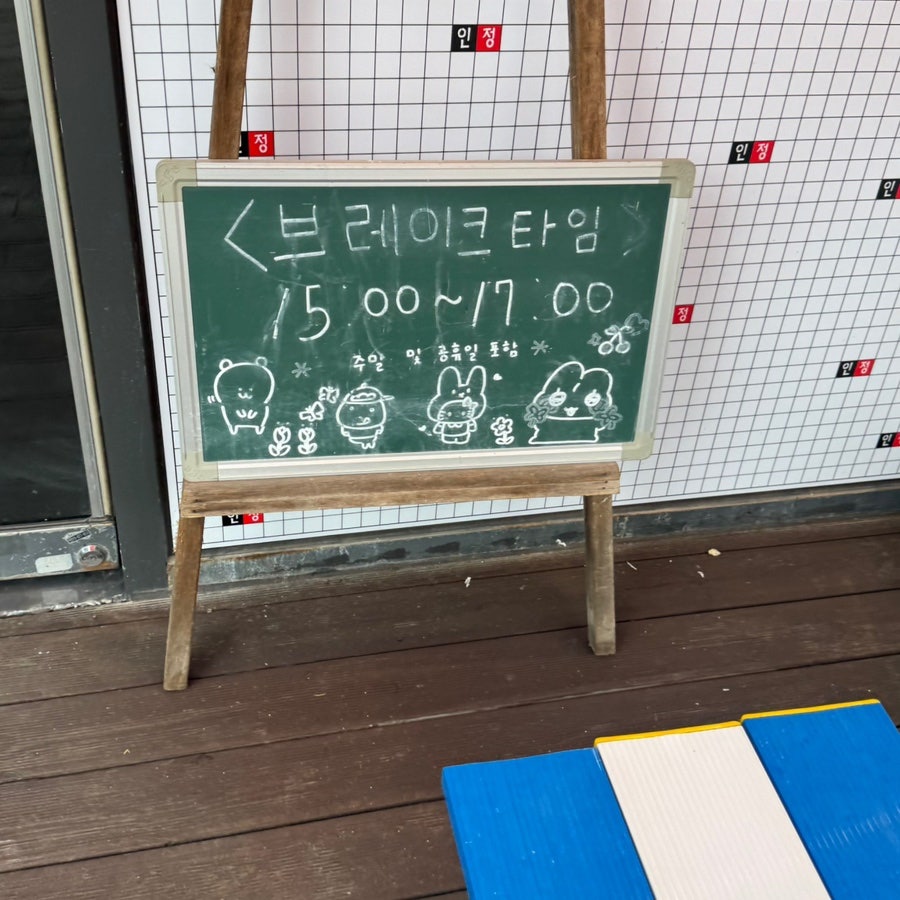 인정
인정
인정
인
<브레이크 타임>
15:00~17:00
정
주말 및 공휴일 포함
인정
인정
인정